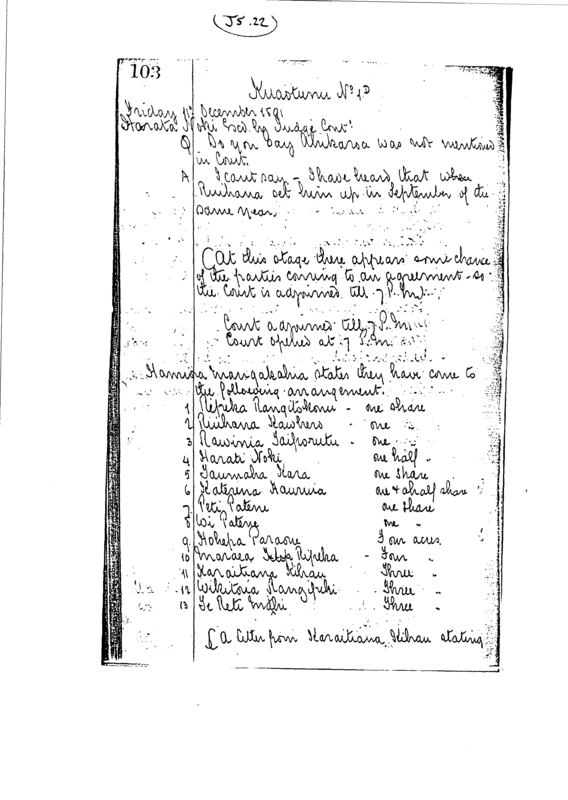 (J5.22)
103
Kuaotunu No 1D
Friday 11th December 1891
Harata Noki Exd by Judge Cont'd
Q Do you say Ahikaroa was not mentioned
in Court.
A I cant say - I have heard that when
Ruihana set him up in September of the
same year.
(At this stage there appears some chance
of the parties coming to an agreement - so
the Court is adjourned till 7 P.M.
Court adjourned till 7 P.M
Court opened at 7 P.M.
Hamiora Mangakahia states they have come to
the following arrangement.
1 Ripeka Rangitokonu - one share
2 Ruihana Kawhero - one "
3 Rawinia Taiporutu - one "
4 Harati Noki one half "
5 Taumaha Kara one share
6 Katerina Hauruia one & a half share
7 Peti Patene one share
8 Wi Patene one "
9 Hohepa Paraone Four acres.
10 Maraea Ripeka - Four "
11 Karaitiana Kihau Three "
12 Wikitoria Rangipiki - Three "
13 Te Reti Mahi Three "
(A letter from Karaitiana Kihau stating